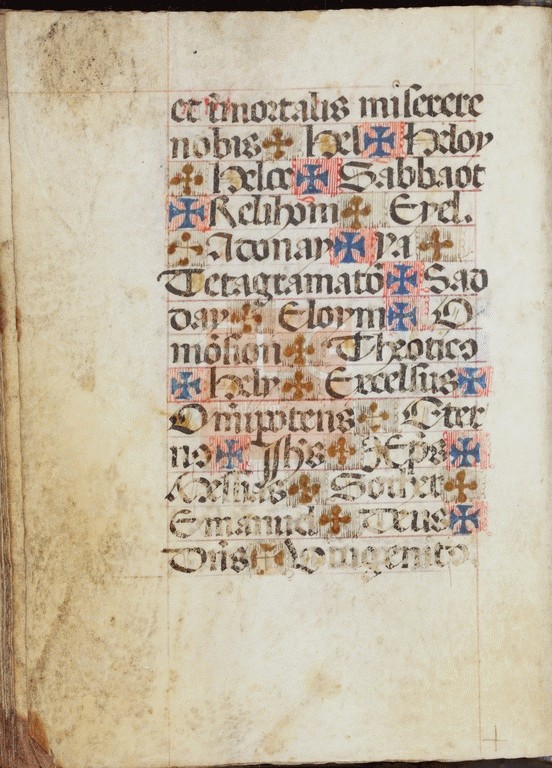 et īmortalis miserere
nobis ✠ Hel ✠ Heloy
✠ Heloe ✠ Sabbaot
✠ Relihom ✠ Eyel.
✠ Adonay ✠ ya ✠
Tetagramatō ✠ Sad
day ✠ Eloym ✠ O
mōsion ✠ Theotico
✠ Hely ✠ Excelsus ✠
Om̄ipotens ✠ Eter
no ✠ Jh̄s ✠ Xp̄s ✠
Messias ✠ Sother ✠
Emanuel ✠ Deus ✠
Dn̄s ✠